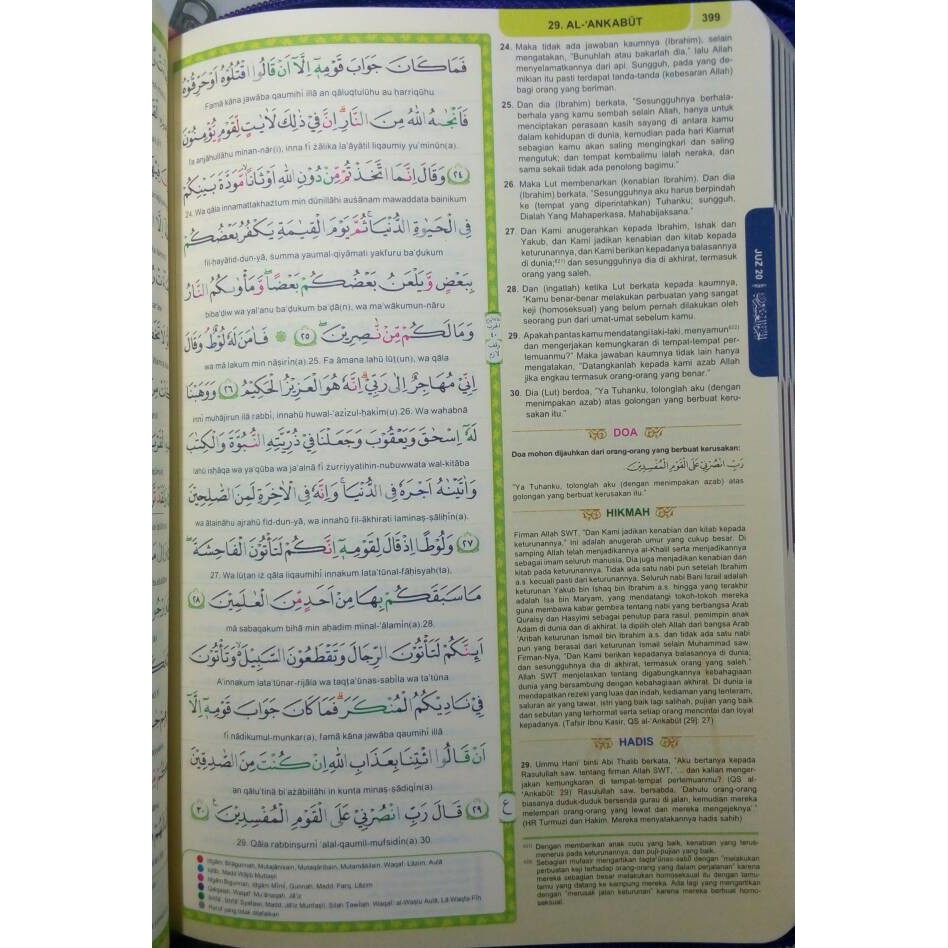 29. AL-'ANKABŪT
399
فَمَا كَانَ جَوَابَ قَوْمِهٖٓ اِلَّآ اَنْ قَالُوا اقْتُلُوْهُ اَوْ حَرِّقُوْهُ
Famā kāna jawāba qaumihī illā an qāluqtulūhu au ḥarriqūhu
فَاَنْجٰىهُ اللّٰهُ مِنَ النَّارِۗ اِنَّ فِيْ ذٰلِكَ لَاٰيٰتٍ لِّقَوْمٍ يُّؤْمِنُوْنَ
fa anjāhullāhu minan-nār(i), inna fī żālika la'āyātil liqaumiy yu'minūn(a).
٢٤ وَقَالَ اِنَّمَا اتَّخَذْتُمْ مِّنْ دُوْنِ اللّٰهِ اَوْثَانًاۙ مَّوَدَّةَ بَيْنِكُمْ
24. Wa qāla innamattakhażtum min dūnillāhi auṡānam mawaddata bainikum
فِى الْحَيٰوةِ الدُّنْيَاۚ ثُمَّ يَوْمَ الْقِيٰمَةِ يَكْفُرُ بَعْضُكُمْ
fil-ḥayāṫid-dun-yā, summa yaumal-qiyāmati yakfuru ba'ḍukum
بِبَعْضٍ وَّيَلْعَنُ بَعْضُكُمْ بَعْضًاۖ وَّمَأْوٰىكُمُ النَّارُ
biba'ḍiw wa yal'anu ba'ḍukum ba'ḍā(n), wa ma'wākumun-nāru
وَمَا لَكُمْ مِّنْ نّٰصِرِيْنَۖ ٢٥ ۞ فَاٰمَنَ لَهٗ لُوْطٌۘ وَقَالَ
wa mā lakum min nāṣirīn(a).25. Fa āmana lahū lūṭ(un), wa qāla
اِنِّيْ مُهَاجِرٌ اِلٰى رَبِّيْۗ اِنَّهٗ هُوَ الْعَزِيْزُ الْحَكِيْمُ ٢٦ وَوَهَبْنَا
innī muhājirun ilā rabbī, innahū huwal-'azīzul-ḥakīm(u).26. Wa wahabnā
لَهٗٓ اِسْحٰقَ وَيَعْقُوْبَ وَجَعَلْنَا فِيْ ذُرِّيَّتِهِ النُّبُوَّةَ وَالْكِتٰبَ
lahū isḥāqa wa ya'qūba wa ja'alnā fī żurriyyatihin-nubuwwata wal-kitāba
وَاٰتَيْنٰهُ اَجْرَهٗ فِى الدُّنْيَاۚ وَاِنَّهٗ فِى الْاٰخِرَةِ لَمِنَ الصّٰلِحِيْنَ
wa ātaināhu ajrahū fid-dun-yā, wa innahū fil-ākhirati laminaṣ-ṣāliḥīn(a).
٢٧ وَلُوْطًا اِذْ قَالَ لِقَوْمِهٖٓ اِنَّكُمْ لَتَأْتُوْنَ الْفَاحِشَةَۖ
27. Wa lūṭan iż qāla liqaumihī innakum lata'tūnal-fāḥisyah(ta),
مَا سَبَقَكُمْ بِهَا مِنْ اَحَدٍ مِّنَ الْعٰلَمِيْنَ ٢٨
mā sabaqakum bihā min aḥadim minal-'ālamīn(a).28.
اَىِٕنَّكُمْ لَتَأْتُوْنَ الرِّجَالَ وَتَقْطَعُوْنَ السَّبِيْلَ ەۙ وَتَأْتُوْنَ
A'innakum lata'tūnar-rijāla wa taqṭa'ūnas-sabīla wa ta'tūna
فِيْ نَادِيْكُمُ الْمُنْكَرَۗ فَمَا كَانَ جَوَابَ قَوْمِهٖٓ اِلَّآ
fī nādīkumul-munkar(a), famā kāna jawāba qaumihī illā
اَنْ قَالُوا ائْتِنَا بِعَذَابِ اللّٰهِ اِنْ كُنْتَ مِنَ الصّٰدِقِيْنَ
an qālu'tinā bi'ażābillāhi in kunta minaṣ-ṣādiqīn(a).
٢٩ قَالَ رَبِّ انْصُرْنِيْ عَلَى الْقَوْمِ الْمُفْسِدِيْنَ ٣٠
29. Qāla rabbinṣurnī 'alal-qaumil-mufsidīn(a).30
24. Maka tidak ada jawaban kaumnya (Ibrahim), selain
mengatakan, "Bunuhlah atau bakarlah dia," lalu Allah
menyelamatkannya dari api. Sungguh, pada yang de-
mikian itu pasti terdapat tanda-tanda (kebesaran Allah)
bagi orang yang beriman.
25. Dan dia (Ibrahim) berkata, "Sesungguhnya berhala-
berhala yang kamu sembah selain Allah, hanya untuk
menciptakan perasaan kasih sayang di antara kamu
dalam kehidupan di dunia, kemudian pada hari Kiamat
sebagian kamu akan saling mengingkari dan saling
mengutuk; dan tempat kembalimu ialah neraka, dan
sama sekali tidak ada penolong bagimu."
26. Maka Lut membenarkan (kenabian Ibrahim). Dan dia
(Ibrahim) berkata, "Sesungguhnya aku harus berpindah
ke (tempat yang diperintahkan) Tuhanku; sungguh,
Dialah Yang Mahaperkasa, Mahabijaksana."
27. Dan Kami anugerahkan kepada Ibrahim, Ishak dan
Yakub, dan Kami jadikan kenabian dan kitab kepada
keturunannya, dan Kami berikan kepadanya balasannya
di dunia; dan sesungguhnya dia di akhirat, termasuk
orang yang saleh.
28. Dan (ingatlah) ketika Lut berkata kepada kaumnya,
"Kamu benar-benar melakukan perbuatan yang sangat
keji (homoseksual) yang belum pernah dilakukan oleh
seorang pun dari umat-umat sebelum kamu.
29. Apakah pantas kamu mendatangi laki-laki, menyamun
dan mengerjakan kemungkaran di tempat-tempat per-
temuanmu?" Maka jawaban kaumnya tidak lain hanya
mengatakan, "Datangkanlah kepada kami azab Allah
jika engkau termasuk orang-orang yang benar."
30. Dia (Lut) berdoa, "Ya Tuhanku, tolonglah aku (dengan
menimpakan azab) atas golongan yang berbuat keru-
sakan itu."
DOA
Doa mohon dijauhkan dari orang-orang yang berbuat kerusakan:
رَبِّ انْصُرْنِيْ عَلَى الْقَوْمِ الْمُفْسِدِيْنَ
"Ya Tuhanku, tolonglah aku (dengan menimpakan azab) atas
golongan yang berbuat kerusakan itu."
HIKMAH
Firman Allah SWT, "Dan Kami jadikan kenabian dan kitab kepada
keturunannya," Ini adalah anugerah umur yang cukup besar. Di
samping Allah telah menjadikannya al-Khalil serta menjadikannya
sebagai imam seluruh manusia, Dia juga menjadikan kenabian dan
kitab pada keturunannya. Tidak ada satu nabi pun setelah Ibrahim
a.s. kecuali pasti dari keturunannya. Seluruh nabi Bani Israil adalah
keturunan Yakub bin Ishaq bin Ibrahim a.s. hingga yang terakhir
adalah Isa bin Maryam, yang mendatangi tokoh-tokoh mereka
guna membawa kabar gembira tentang nabi yang berbangsa Arab
Quraisy dan Hasyimi sebagai penutup para rasul, pemimpin anak
Adam di dunia dan di akhirat. Ia dipilih oleh Allah dari bangsa Arab
'Aribah keturunan Ismail bin Ibrahim a.s. dan tidak ada satu nabi
pun yang berasal dari keturunan Ismail selain Muhammad saw.
Firman-Nya, "Dan Kami berikan kepadanya balasannya di dunia;
dan sesungguhnya dia di akhirat, termasuk orang yang saleh."
Allah SWT menjelaskan tentang digabungkannya kebahagiaan
dunia yang bersambung dengan kebahagiaan akhirat. Di dunia ia
mendapatkan rezeki yang luas dan indah, kediaman yang tenteram,
saluran air yang tawar, istri yang baik lagi salihah, pujian yang baik
dan sebutan yang terhormat serta setiap orang mencintai dan loyal
kepadanya. (Tafsir Ibnu Kasir, QS al-'Ankabūt [29]: 27)
HADIS
29. Ummu Hani' binti Abi Thalib berkata, "Aku bertanya kepada
Rasulullah saw. tentang firman Allah SWT, '... dan kalian menger-
jakan kemungkaran di tempat-tempat pertemuanmu?' (QS al-
'Ankabūt: 29) Rasulullah saw. bersabda, 'Dahulu orang-orang
biasanya duduk-duduk bersenda gurau di jalan, kemudian mereka
melempari orang-orang yang lewat dan mereka mengejeknya'."
(HR Turmuzi dan Hakim. Mereka menyatakannya hadis sahih)
Dengan memberikan anak cucu yang baik, kenabian yang terus-
menerus pada keturunannya, dan puji-pujian yang baik.
Sebagian mufasir mengartikan taqṭa'ūnas-sabīl dengan "melakukan
perbuatan keji terhadap orang-orang yang dalam perjalanan" karena
mereka sebagian besar melakukan homoseksual itu dengan tamu-
tamu yang datang ke kampung mereka. Ada lagi yang mengartikan
dengan "merusak jalan keturunan" karena mereka berbuat homo-
seksual.
JUZ 20